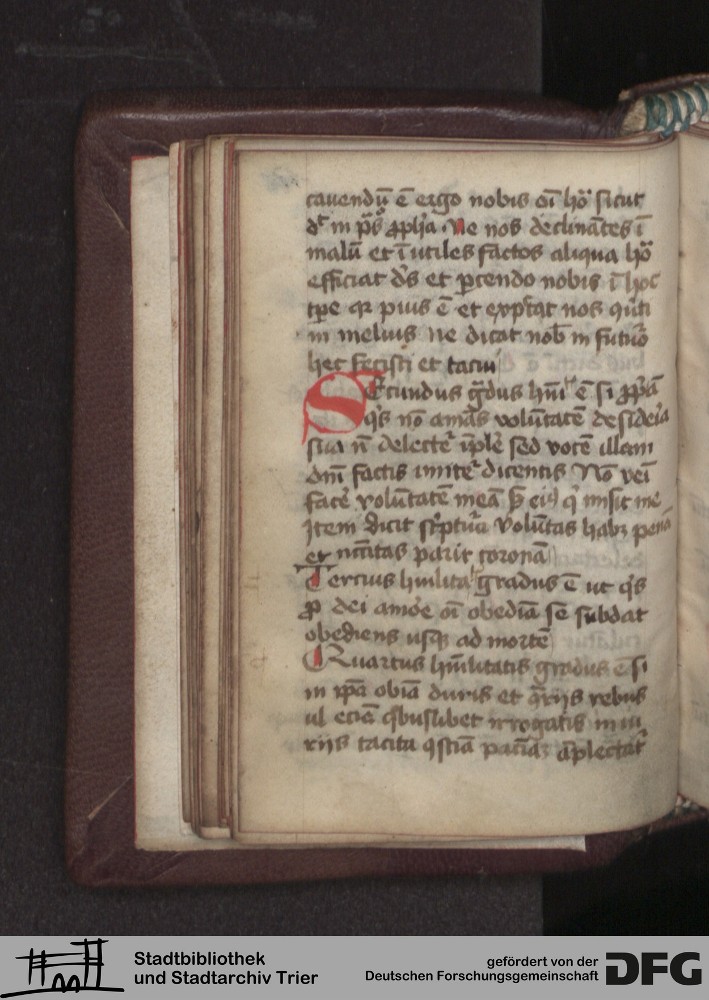 cauendū ē ergo nobis oī hō sicut
dt in ps̄ ꝓph̄a Ne nos declinātes ī
malū et īutiles factos aliqua hō
efficiat ds̄ et ꝑcendo nobis ī hoc
tꝑe qr pius ē et expctat nos
in melius ne dicat nob̄ in futuo
hec fecisti et tacui
Ecundus gdus ē si
qs nō amās volūtatē desideia
sua n̄ delectet īple sed vocē illam
dnī factis imitet dicentis Nō veī
facē volūtatē meā eius qi misit me
Item dicit scptua Voluntas habꝫ penā
et ncītas parit coronā
Tercius humilitat gradus ē ut qs
ꝓ dei amoe oī obediā se subdat
obediens usqꝫ ad mortē
Quartus hūilitatis gradus ē si
in ipā obiā duris et rebus
ul eciā qbuslibet irrogatis iniu
riis tacita qsciā aplectat
Stadtbibliothek
und Stadtarchiv Trier
gefördert von der
Deutschen Forschungsgemeinschaft
DFG